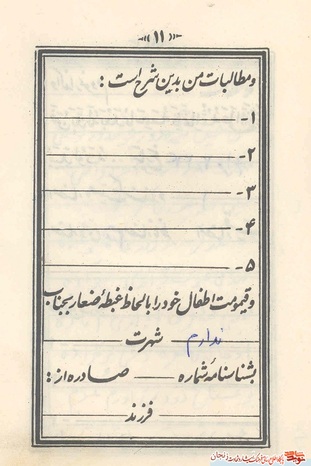 «(( ۱۱ ))»
و مطالبات من بدین شرح است :
۱-
۲-
۳-
۴-
۵-
و قیمومت اطفال خود را با لحاظ غبطهٔ صغار بجناب
ندارم شهرت
بشناسنامهٔ شماره صادره از :
فرزند